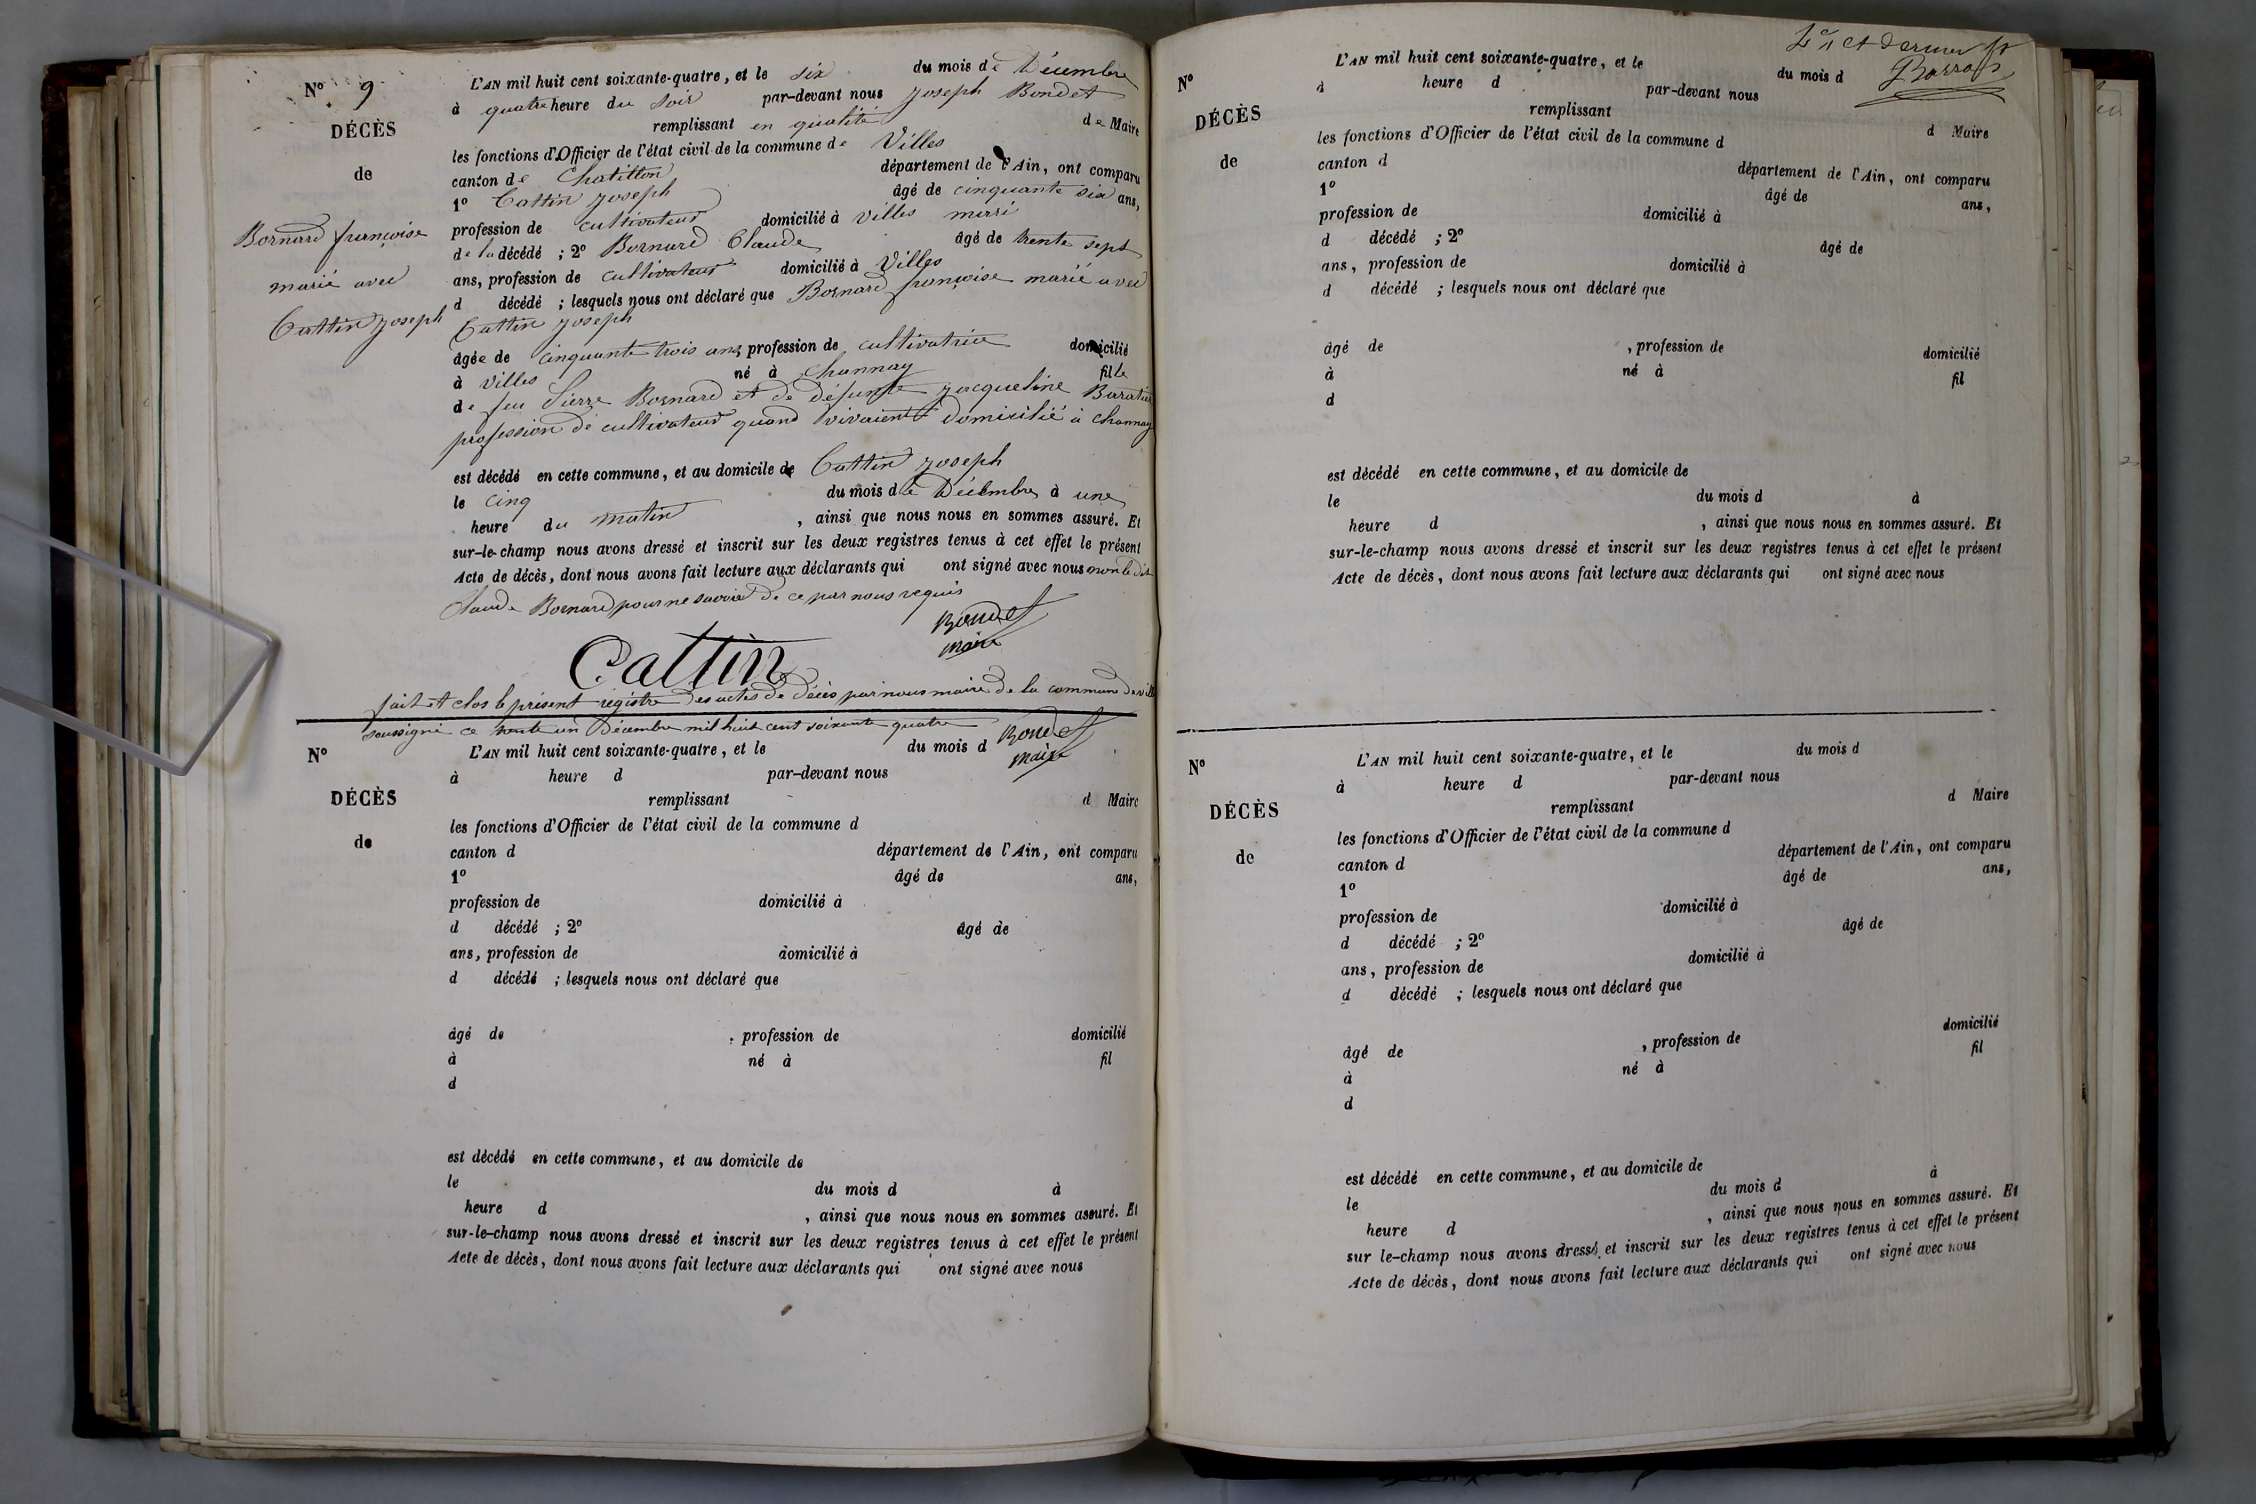 N° 9
DÉCÈS
de
Bornard françoise
marié avec
Cattin Joseph
L'AN mil huit cent soixante-quatre, et le six du mois de Décembre
à quatre heure du soir par-devant nous Joseph Bondet
remplissant en qualité de Maire
les fonctions d'Officier de l'état civil de la commune de Villes
canton de Chatillon département de l'Ain, ont comparu
1° Cattin Joseph âgé de cinquante six ans,
profession de cultivateur domicilié à Villes mari
de la décédé ; 2° Bornard Claude âgé de trente sept
ans, profession de cultivateur domicilié à Villes
d décédé ; lesquels nous ont déclaré que Bornard françoise marié avec
Cattin Joseph
âgée de cinquante trois ans, profession de cultivatrice domicilié
à Villes né à Channay fille
de feu Pierre Bornard et de défunte Jacqueline
profession de cultivateur quand vivaient domicilié à Channay
est décédé en cette commune, et au domicile de Cattin Joseph
le cinq du mois de Décembre à une
heure du matin , ainsi que nous nous en sommes assuré. Et
sur-le-champ nous avons dressé et inscrit sur les deux registres tenus à cet effet le présent
Acte de décès, dont nous avons fait lecture aux déclarants qui ont signé avec nous non le dit
Claude Bornard pour ne savoir de ce par nous requis
Bondet
maire
Cattin
fait et clos le présent registre des actes de décès par nous maire de la commune de
soussigné ce trente un Décembre mil huit cent soixante quatre
Bondet
maire
N°
DÉCÈS
de
L'AN mil huit cent soixante-quatre, et le du mois d
à heure d par-devant nous
remplissant d Maire
les fonctions d'Officier de l'état civil de la commune d
canton d département de l'Ain, ont comparu
1° âgé de ans,
profession de domicilié à
d décédé ; 2° âgé de
ans, profession de domicilié à
d décédé ; lesquels nous ont déclaré que
âgé de , profession de domicilié
à né à fil
d
est décédé en cette commune, et au domicile de
le du mois d à
heure d , ainsi que nous nous en sommes assuré. Et
sur-le-champ nous avons dressé et inscrit sur les deux registres tenus à cet effet le présent
Acte de décès, dont nous avons fait lecture aux déclarants qui ont signé avec nous
et dernier
N°
DÉCÈS
de
L'AN mil huit cent soixante-quatre, et le du mois d
à heure d par-devant nous
remplissant d Maire
les fonctions d'Officier de l'état civil de la commune d
canton d département de l'Ain, ont comparu
1° âgé de ans,
profession de domicilié à
d décédé ; 2° âgé de
ans, profession de domicilié à
d décédé ; lesquels nous ont déclaré que
âgé de , profession de domicilié
à né à fil
d
est décédé en cette commune, et au domicile de
le du mois d à
heure d , ainsi que nous nous en sommes assuré. Et
sur-le-champ nous avons dressé et inscrit sur les deux registres tenus à cet effet le présent
Acte de décès, dont nous avons fait lecture aux déclarants qui ont signé avec nous
N°
DÉCÈS
de
L'AN mil huit cent soixante-quatre, et le du mois d
à heure d par-devant nous
remplissant d Maire
les fonctions d'Officier de l'état civil de la commune d
canton d département de l'Ain, ont comparu
1° âgé de ans,
profession de domicilié à
d décédé ; 2° âgé de
ans, profession de domicilié à
d décédé ; lesquels nous ont déclaré que
âgé de , profession de domicilié
à né à fil
d
est décédé en cette commune, et au domicile de
le du mois d à
heure d , ainsi que nous nous en sommes assuré. Et
sur le-champ nous avons dressé et inscrit sur les deux registres tenus à cet effet le présent
Acte de décès, dont nous avons fait lecture aux déclarants qui ont signé avec nous